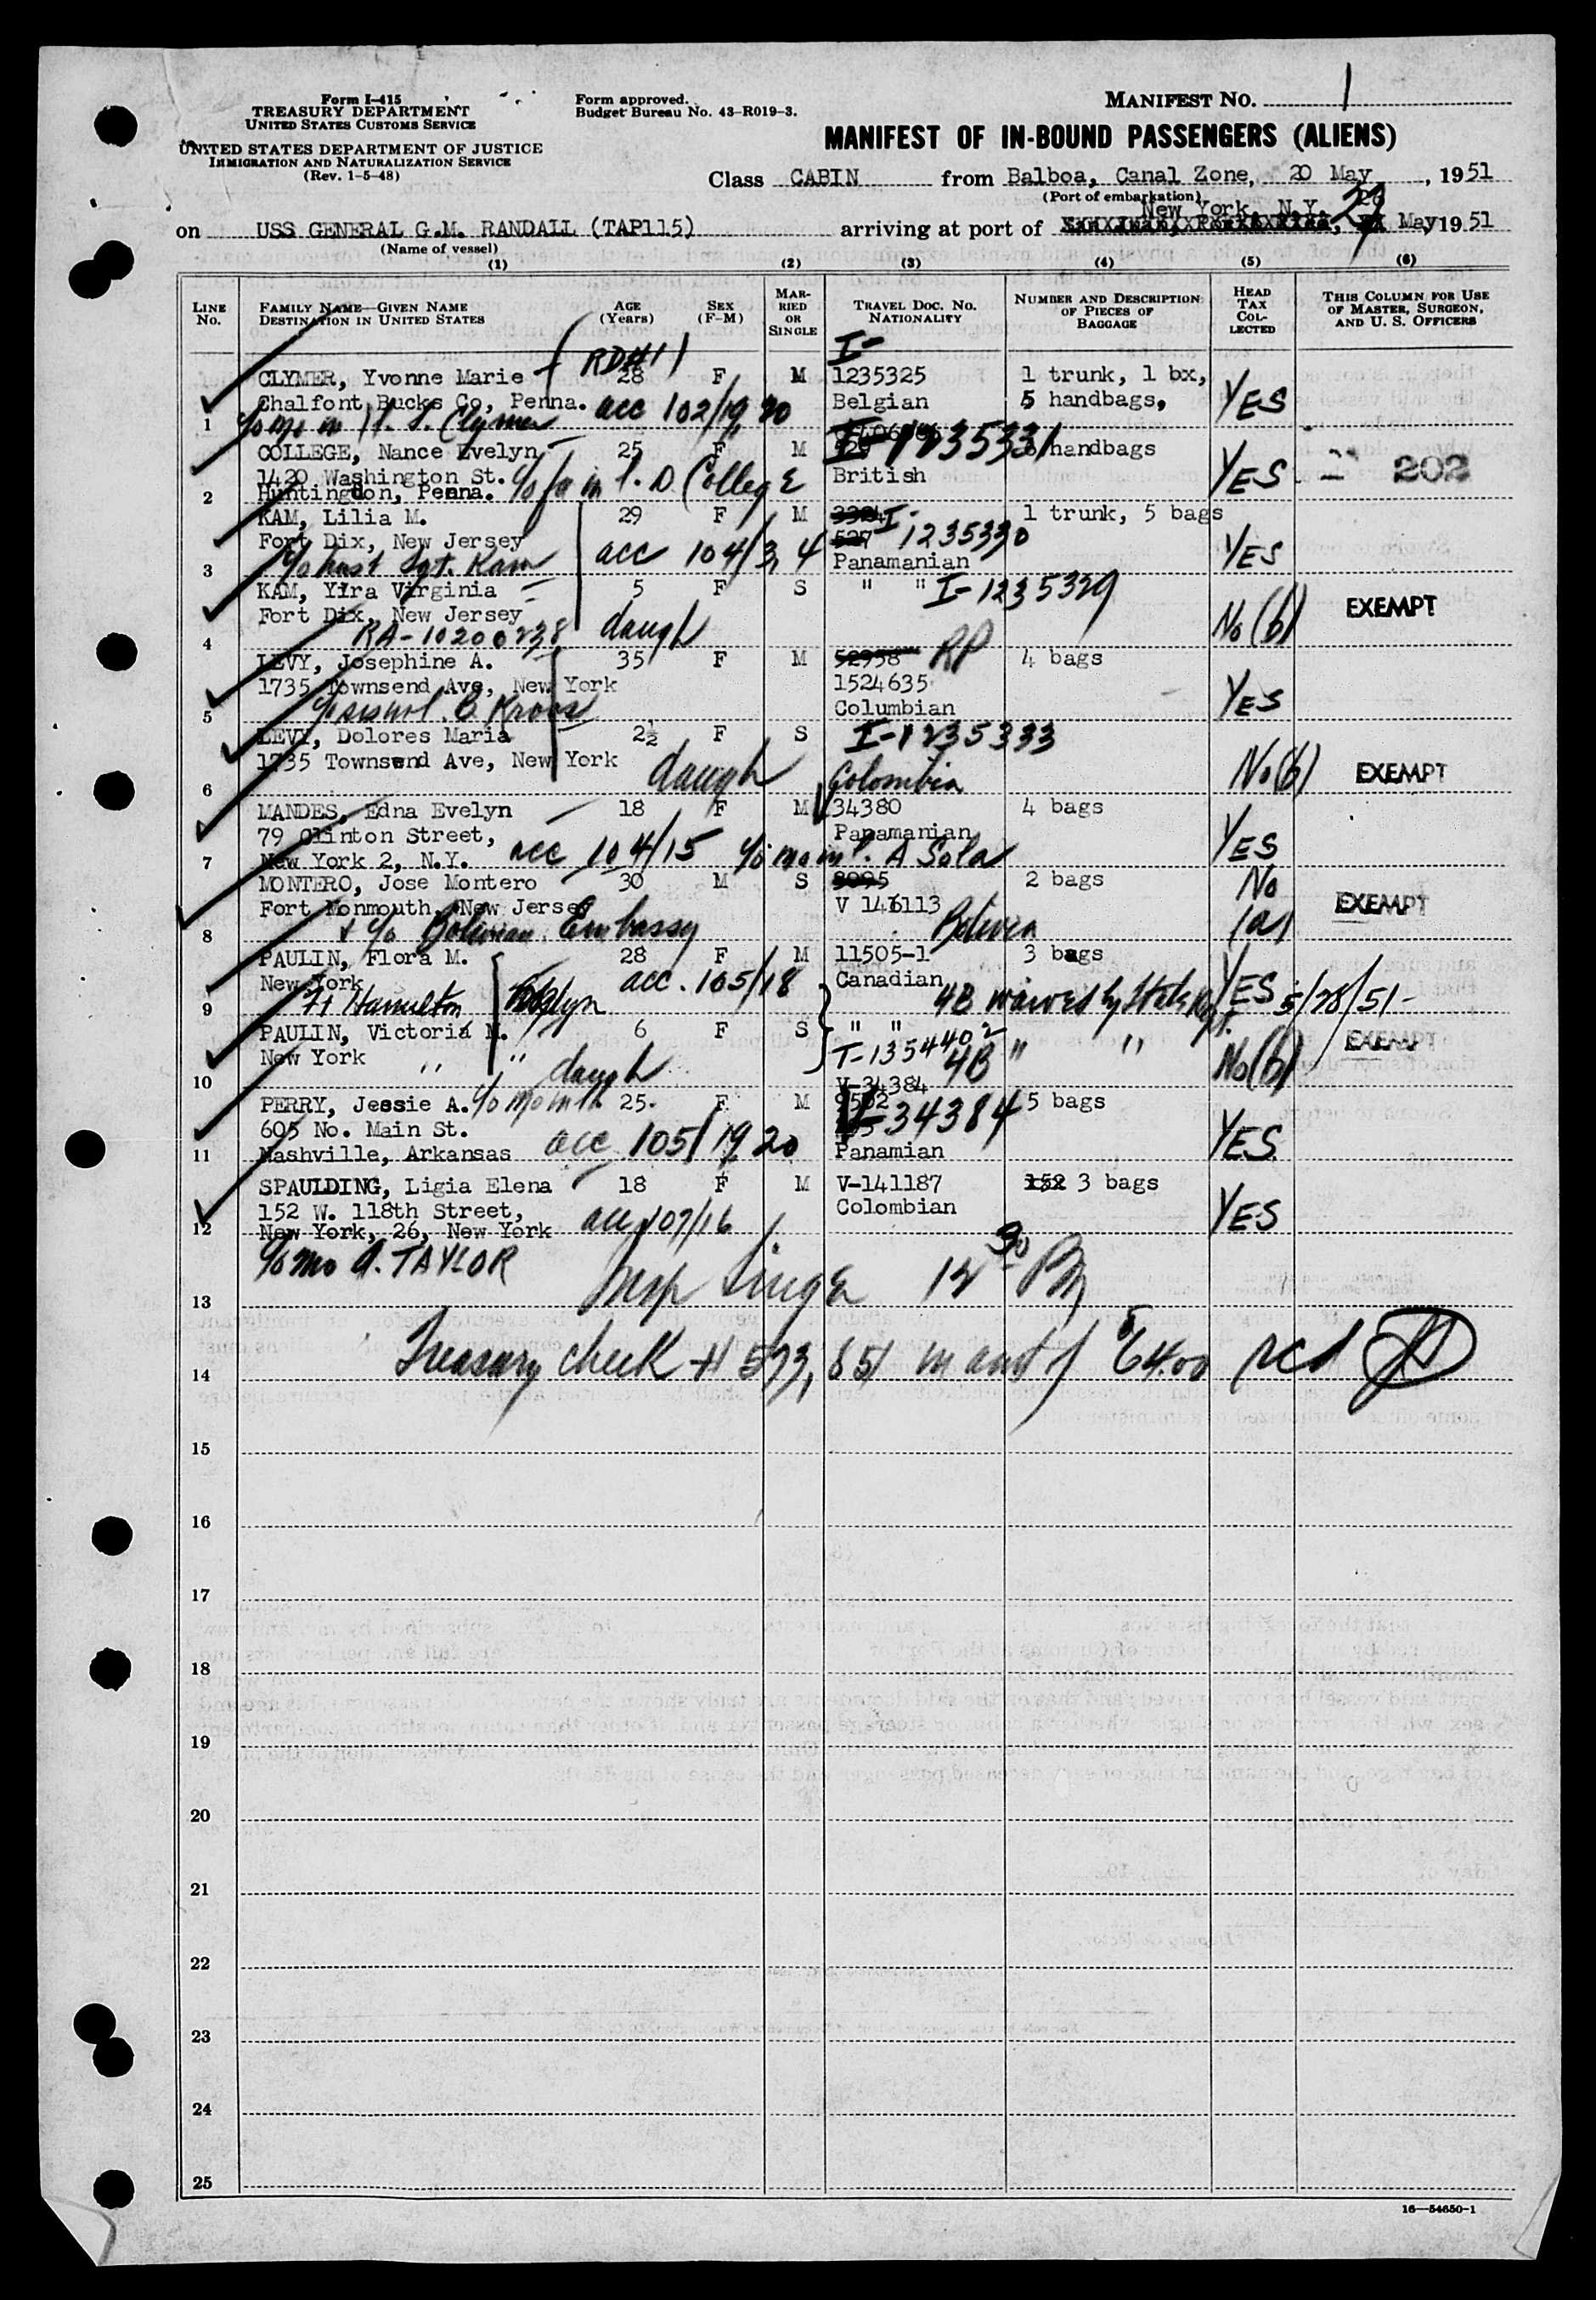 Form I-415
TREASURY DEPARTMENT
UNITED STATES CUSTOMS SERVICE
UNITED STATES DEPARTMENT OF JUSTICE
IMMIGRATION AND NATURALIZATION SERVICE
(Rev. 1-5-48)
Form approved.
Budget Bureau No. 43-R019-3.
MANIFEST NO. 1
MANIFEST OF IN-BOUND PASSENGERS (ALIENS)
Class CABIN from Balboa, Canal Zone, 20 May, 1951
(Port of embarkation)
New York, N.Y.
on USS GENERAL G.M. RANDALL (TAP115) arriving at port of 29 May 1951
(Name of vessel)
(1) (2) (3) (4) (5) (6)
LINE No.
FAMILY NAME—GIVEN NAME
DESTINATION IN UNITED STATES
AGE (Years)
SEX (F-M)
MARRIED OR SINGLE
TRAVEL DOC. NO.
NATIONALITY
NUMBER AND DESCRIPTION OF PIECES OF BAGGAGE
HEAD TAX COLLECTED
THIS COLUMN FOR USE OF MASTER, SURGEON, AND U. S. OFFICERS
(RD#1) I-
CLYMER, Yvonne Marie 28 F M 1235325 1 trunk, 1 bx,
Chalfont Bucks Co, Penna. acc 102/19,20 Belgian 5 handbags, YES
1 c/o mo in l. S. Clymer
COLLEGE, Nance Evelyn 25 F M I-1235331 handbags
1420 Washington St. British YES 202
2 Huntingdon, Penna. c/o fa in l. D. College
KAM, Lilia M. 29 F M 3324 I- 1 trunk, 5 bags
Fort Dix, New Jersey acc 104/3,4 527 1235330 YES
3 c/o husb Sgt. Kam Panamanian
KAM, Yira Virginia 5 F S " " I-1235329
Fort Dix, New Jersey daugh No (b) EXEMPT
4 RA-10200238
LEVY, Josephine A. 35 F M 52958 RP 4 bags
1735 Townsend Ave, New York 1524635 YES
5 Columbian
LEVY, Dolores Maria 2½ F S I-1235333
1735 Townsend Ave, New York daugh Colombia No (b) EXEMPT
6
MANDES, Edna Evelyn 18 F M 34380 4 bags
79 Clinton Street, Panamanian YES
7 New York 2, N.Y. acc 104/15 c/o mo in l. A Sola
MONTERO, Jose Montero 30 M S 8095 2 bags No
Fort Monmouth, New Jersey V 146113 (a) EXEMPT
8 c/o Bolivian Embassy Bolivia
PAULIN, Flora M. 28 F M 11505-1 3 bags
New York acc. 105/18 Canadian YES 5/28/51-
9 Ft Hamilton Brooklyn 4B waived by State Dept.
PAULIN, Victoria M. 6 F S " " EXEMPT
New York " " daugh T-1354402 4B " " No (b)
10 V-34384
PERRY, Jessie A. c/o mo in l. 25. F M 9502 5 bags
605 No. Main St. V-34384 YES
11 Nashville, Arkansas acc 105/19,20 Panamian
SPAULDING, Ligia Elena 18 F M V-141187 152 3 bags
152 W. 118th Street, Colombian YES
12 New York, 26, New York acc 107/16
c/o mo A. TAYLOR
13 Insp Singer 12 30 PM
14 Treasury check # 573,851 in amt of $64.00 rcd
15
16
17
18
19
20
21
22
23
24
25
16—54650-1